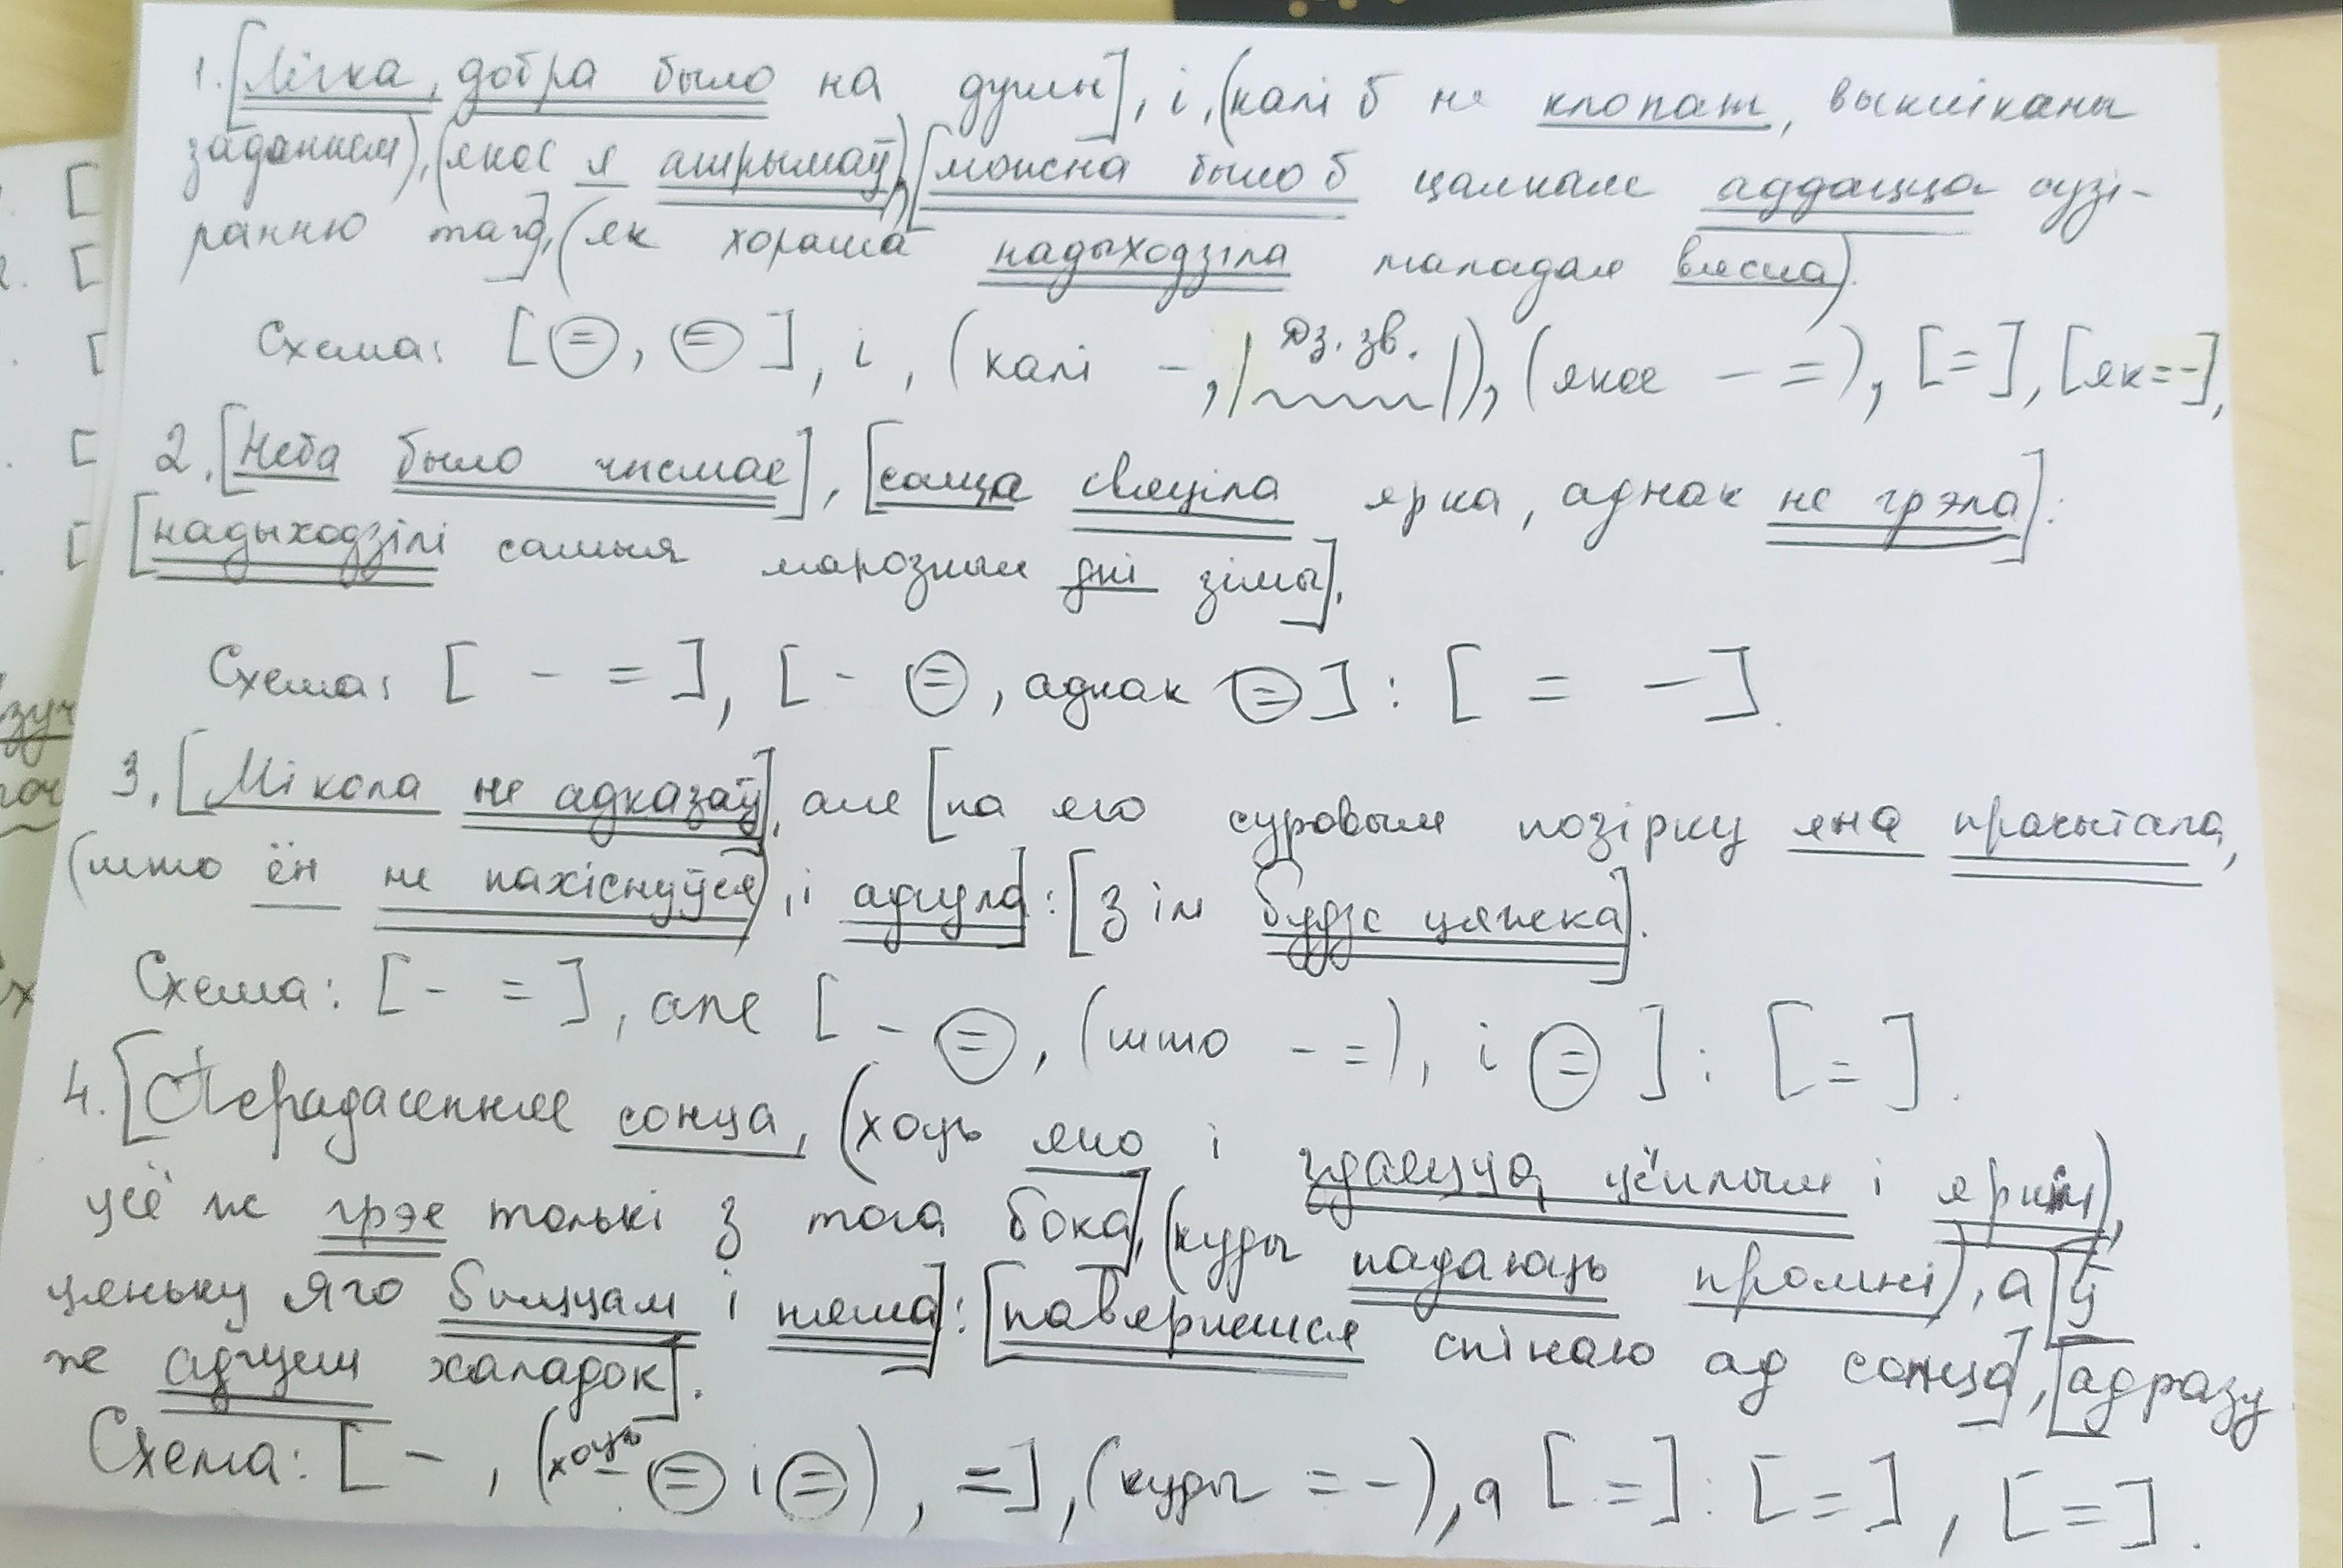 1. [Лёгка, добра было на душы], і, (калі б не клопат, выкліканы
заданнем), (якое я атрымаў), [можна было б цалкам аддацца сузі-
ранню таго], (як хораша надыходзіла маладая вясна).
Схема: [=, =], і, (калі -, |дз. зв.|), (якое - =), [=], [як = -],
2. [Неба было чыстае], [сонца свяціла ярка, аднак не грэла]:
[надыходзілі самыя марозныя дні зімы].
Схема: [- =], [- =, аднак =] : [= -].
3. [Мікола не адказаў], але [па яго суровым позірку яна прачытала,
(што ён не пахіснуўся), і адчула]: [з ім будзе цяжка].
Схема: [- =], але [- =, (што - =), і =] : [=].
4. [Перадасенняе сонца, (хоць яно і здаецца цёплым і яркім),
усё ж грэе толькі з таго бока], (куды падаюць промні), а [ў
ценьку яго быццам і няма]: [павернешся спіною ад сонца], [адразу
ж адчуеш халадок].
Схема: [-, (хоць - = і =), =], (куды = -), а [=] : [=], [=].